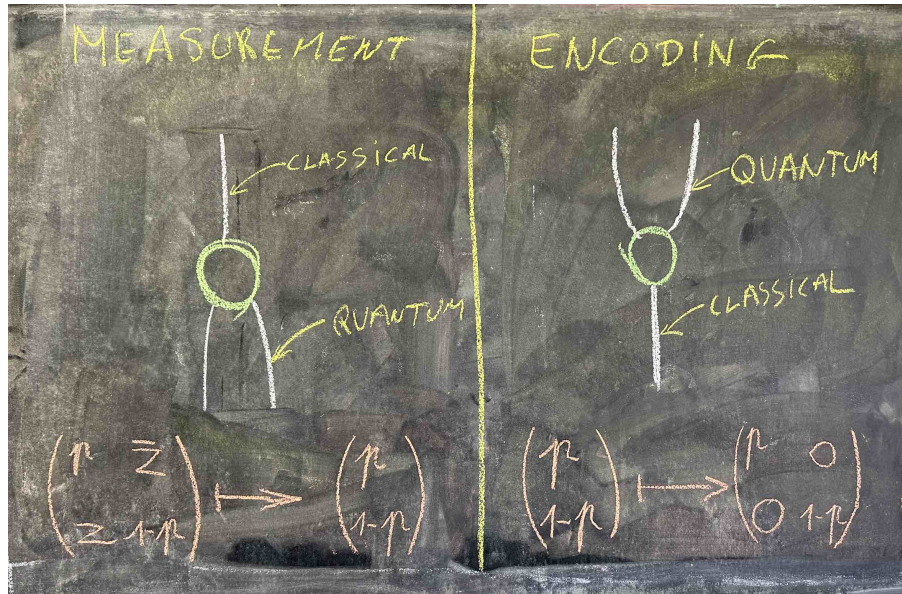 MEASUREMENT
CLASSICAL
QUANTUM
p z̅
z 1-p
↦
p
1-p
ENCODING
QUANTUM
CLASSICAL
p
1-p
↦
p 0
0 1-p